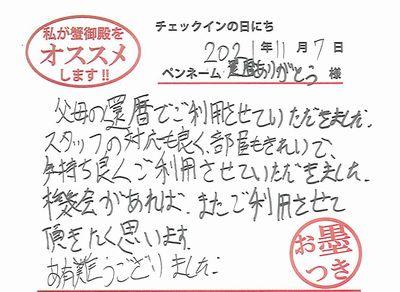 私が蟹御殿を
オススメ
します!!
チェックインの日にち
2021年11月7日
ペンネーム 還暦ありがとう 様
父母の還暦でご利用させていただきました。
スタッフの対応も良く、部屋もきれいで、
気持ち良くご利用させていただきました。
機会があれば、またご利用させて
頂きたく思います。
お有難うございました。
お墨
つき